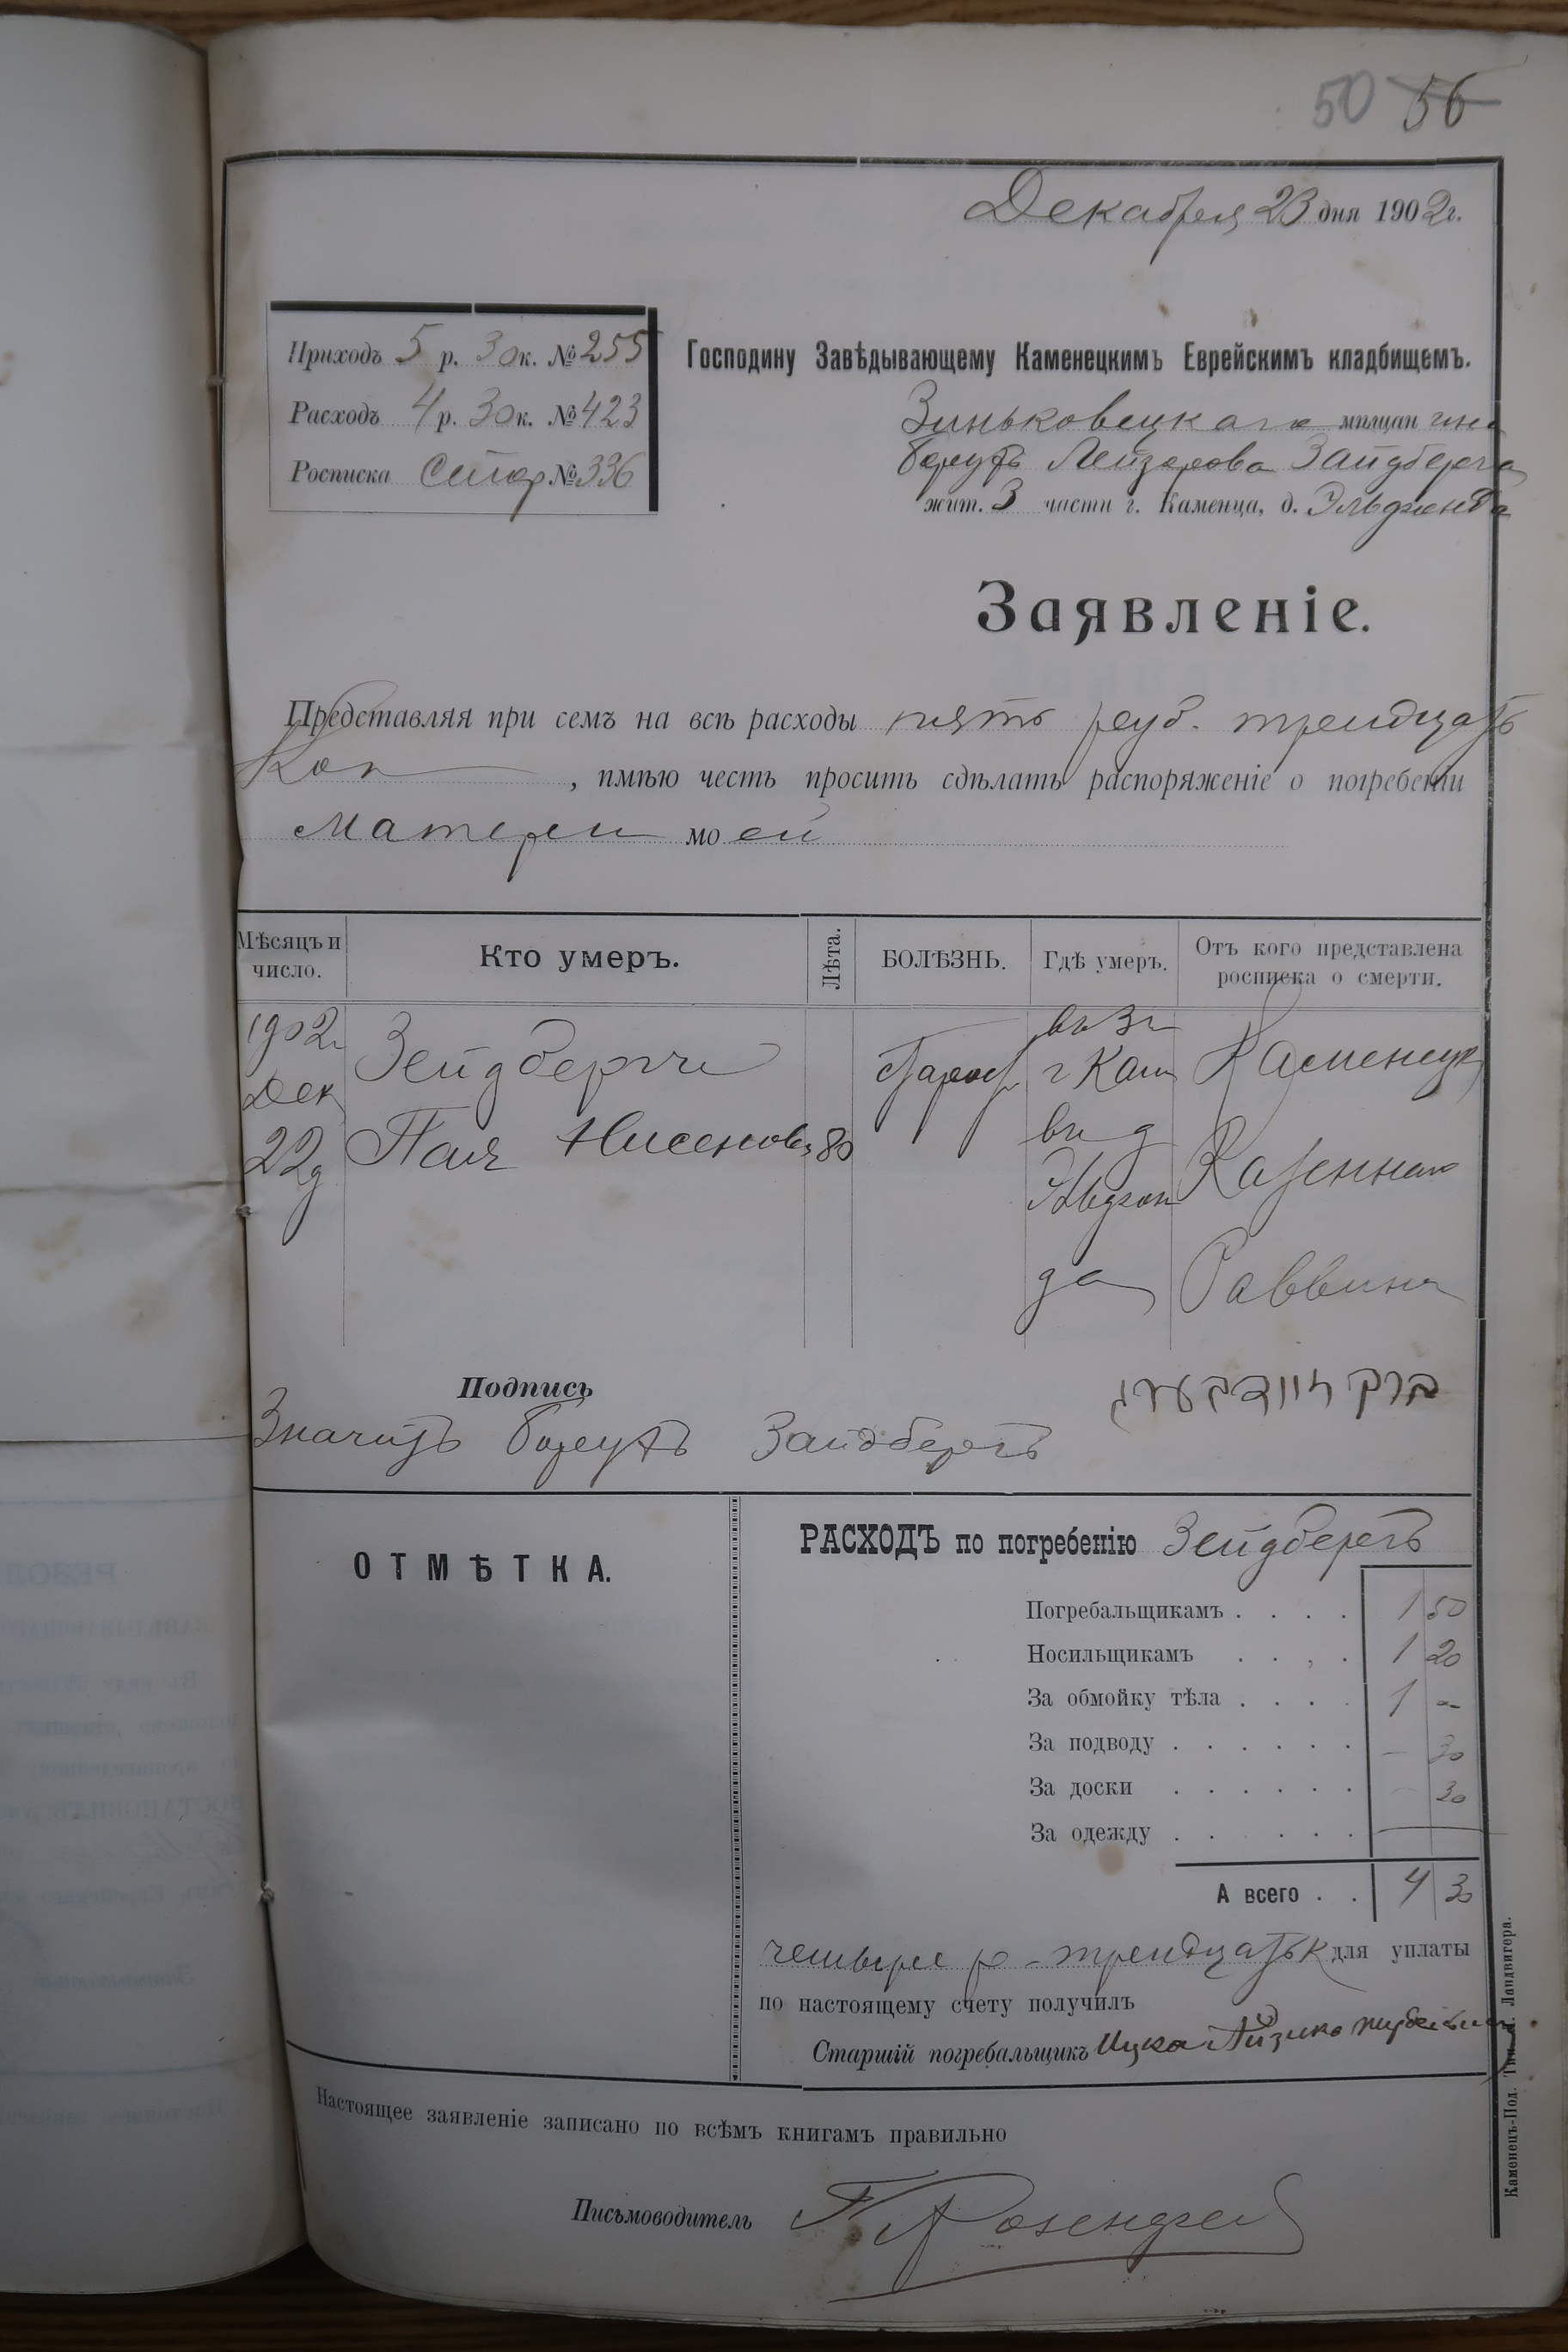 50 56
Декабря 23 дня 1902 г.
Приходъ 5 р. 30 к. № 255
Расходъ 4 р. 30 к. № 423
Росписка Стар № 336
Господину Завѣдывающему Каменецкимъ Еврейскимъ кладбищемъ.
Зиньковецкаго мѣщанина
Борухъ Лейзерова Зайдберга
жит. 3 части г. Каменца, д.
Заявленіе.
Представляя при семъ на всѣ расходы пять руб. тридцать
Коп , имѣю честь просить сдѣлать распоряженіе о погребеніи
Матери моей
Мѣсяцъ и число.
Кто умеръ.
Лѣта.
БОЛѢЗНЬ.
Гдѣ умеръ.
Отъ кого представлена росписка о смерти.
1902 г
Дек
22 д
Зейдбергъ
Нисеновa
80
Старост
въ 3 ч
г Кам
въ д
да
Каменецк
Казеннаго
Раввина
Подпись
ברך זיידבערג
Значитъ Борухъ Зайдбергъ
ОТМѢТКА.
РАСХОДЪ по погребенію Зейдбергъ
Погребальщикамъ . . . . 1 50
Носильщикамъ . . . . 1 20
За обмойку тѣла . . . . 1 —
За подводу . . . . . . — 30
За доски . . . . . . — 30
За одежду . . . . . . —
А всего . . 4 30
четыре р - тридцать к для уплаты
по настоящему счету получилъ
Старшій погребальщикъ Ицко Айзико
Настоящее заявленіе записано по всѣмъ книгамъ правильно
Письмоводитель
Каменецъ-Под. Тип. Ландвигера.